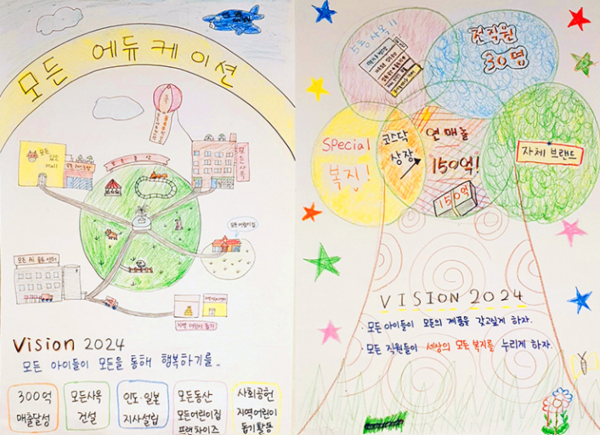 모든 에듀케이션
Vision 2024
모든 아이들이 모든을 통해 행복하기를..
300억
매출달성
모든사옥
건설
인도·일본
지사설립
모든동산
모든어린이집
프랜차이즈
사회공헌
지역어린이
돕기활동
5층 사옥!!
전직원
30명
Special
복지!
코스닥
상장
연매출
150억!
150억
자체 브랜드
VISION 2024
· 모든 아이들이 모든의 제품을 갖고싶게 하자.
· 모든 직원들이 세상의 모든 복지를 누리게 하자.